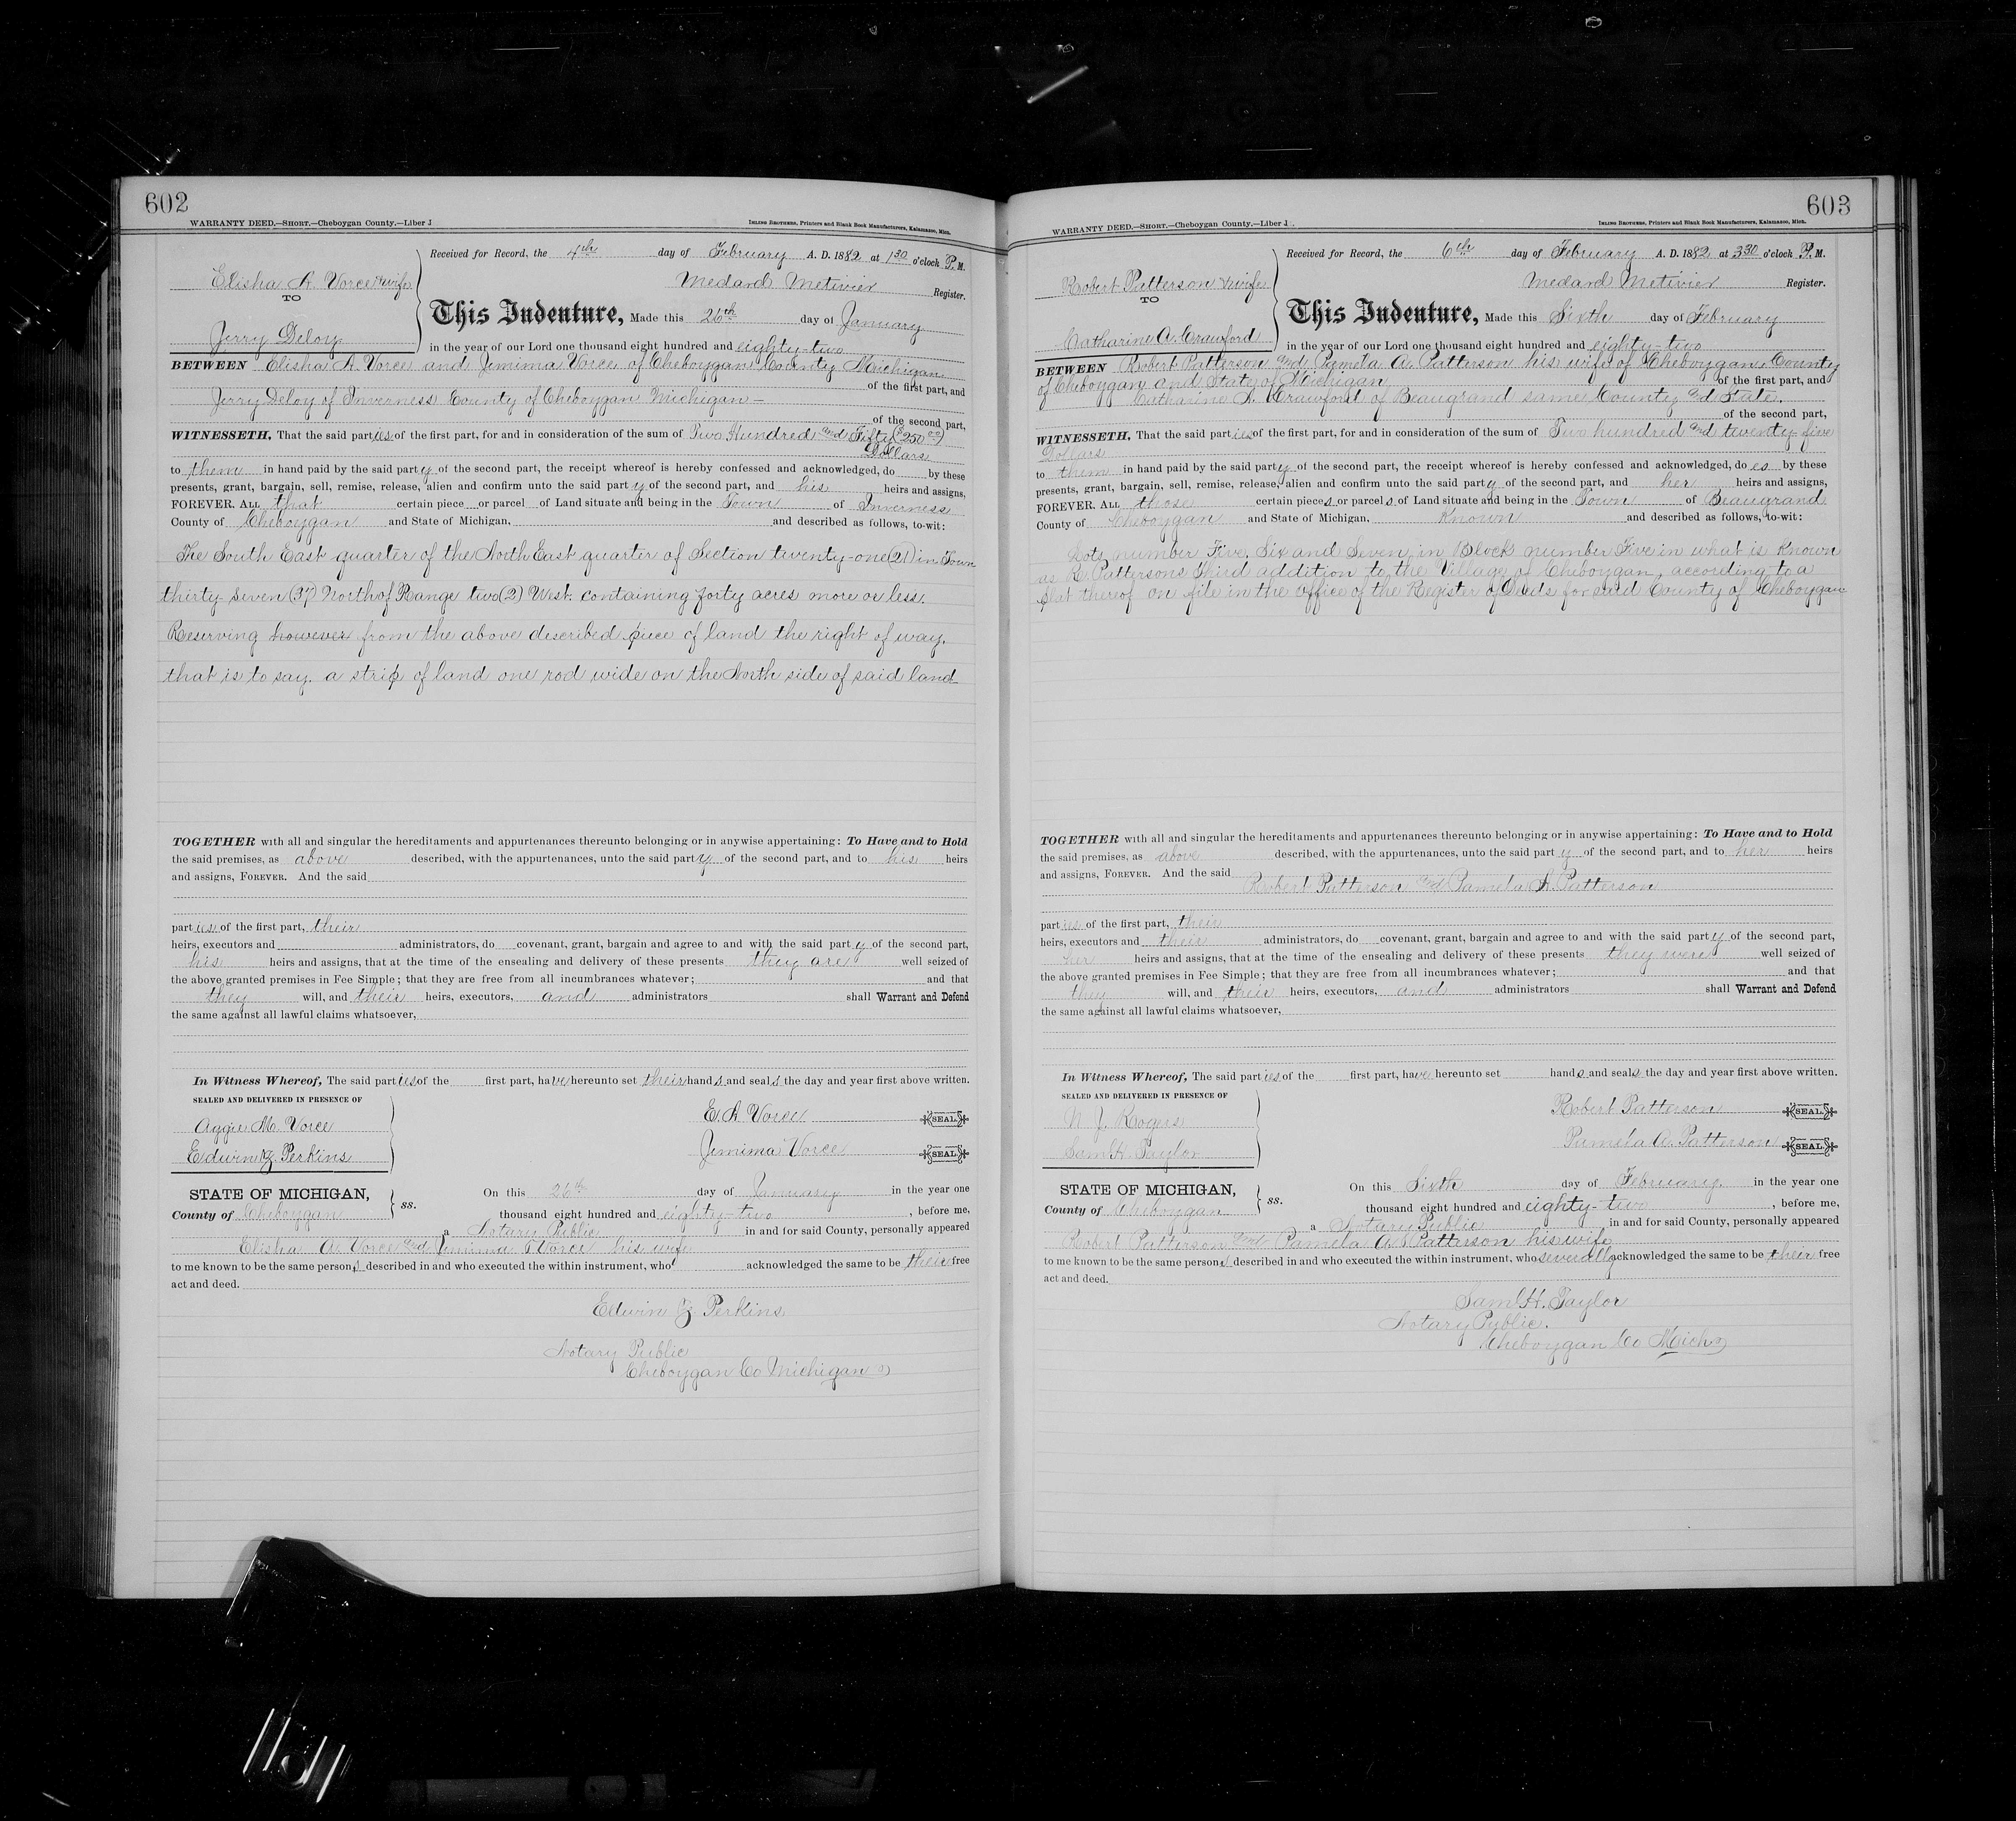 602
WARRANTY DEED.—SHORT.—Cheboygan County.—Liber J
IHLING BROTHERS, Printers and Blank Book Manufacturers, Kalamazoo, Mich.
Received for Record, the 4th day of February A. D. 1882 at 1 30 o'clock P. M.
Elisha A. Vorce & wife
TO
Jerry Deloy
Medard Metivier Register.
This Indenture, Made this 26th day of January
in the year of our Lord one thousand eight hundred and eighty-two
BETWEEN Elisha A. Vorce and Jemima Vorce of Cheboygan County Michigan
of the first part, and
Jerry Deloy of Inverness County of Cheboygan Michigan —
of the second part,
WITNESSETH, That the said parties of the first part, for and in consideration of the sum of Two Hundred and Fifty ($250 00)
Dollars
to them in hand paid by the said party of the second part, the receipt whereof is hereby confessed and acknowledged, do by these
presents, grant, bargain, sell, remise, release, alien and confirm unto the said party of the second part, and his heirs and assigns,
FOREVER. ALL that certain piece or parcel of Land situate and being in the Town of Inverness
County of Cheboygan and State of Michigan, and described as follows, to-wit:
The South East quarter of the North East quarter of Section twenty-one (21) in Town
thirty seven (37) North of Range two (2) West. containing forty acres more or less.
Reserving however from the above described piece of land the right of way.
that is to say. a strip of land one rod wide on the North side of said land
TOGETHER with all and singular the hereditaments and appurtenances thereunto belonging or in anywise appertaining: To Have and to Hold
the said premises, as above described, with the appurtenances, unto the said party of the second part, and to his heirs
and assigns, FOREVER. And the said
parties of the first part, their
heirs, executors and administrators, do covenant, grant, bargain and agree to and with the said party of the second part,
his heirs and assigns, that at the time of the ensealing and delivery of these presents they are well seized of
the above granted premises in Fee Simple; that they are free from all incumbrances whatever; and that
they will, and their heirs, executors, and administrators shall Warrant and Defend
the same against all lawful claims whatsoever,
In Witness Whereof, The said parties of the first part, have hereunto set their hands and seals the day and year first above written.
SEALED AND DELIVERED IN PRESENCE OF
Aggie M. Vorce
Edwin Z. Perkins
E. A. Vorce SEAL
Jemima Vorce SEAL
STATE OF MICHIGAN,
County of Cheboygan
ss.
On this 26th day of January in the year one
thousand eight hundred and eighty-two, before me,
a Notary Public in and for said County, personally appeared
Elisha A. Vorce and Jemima Vorce his wife
to me known to be the same persons described in and who executed the within instrument, who acknowledged the same to be their free
act and deed.
Edwin Z. Perkins
Notary Public
Cheboygan Co Michigan
603
WARRANTY DEED.—SHORT.—Cheboygan County.—Liber J.
IHLING BROTHERS, Printers and Blank Book Manufacturers, Kalamazoo, Mich.
Received for Record, the 6th day of February A. D. 1882 at 3 30 o'clock P. M.
Robert Patterson & wife
TO
Catharine A. Crawford
Medard Metivier Register.
This Indenture, Made this Sixth day of February
in the year of our Lord one thousand eight hundred and eighty-two
BETWEEN Robert Patterson and Pamela A. Patterson his wife of Cheboygan, County
of Cheboygan and State of Michigan of the first part, and
Catharine A. Crawford of Beaugrand same County and State.
of the second part,
WITNESSETH, That the said parties of the first part, for and in consideration of the sum of Two hundred and twenty-five
Dollars
to them in hand paid by the said party of the second part, the receipt whereof is hereby confessed and acknowledged, do es by these
presents, grant, bargain, sell, remise, release, alien and confirm unto the said party of the second part, and her heirs and assigns,
FOREVER. ALL those certain pieces or parcels of Land situate and being in the Town of Beaugrand
County of Cheboygan and State of Michigan, Known and described as follows, to-wit:
Lots number Five, Six and Seven, in Block number Five in what is known
as R. Pattersons Third addition to the Village of Cheboygan, according to a
plat thereof on file in the office of the Register of Deeds for said County of Cheboygan
TOGETHER with all and singular the hereditaments and appurtenances thereunto belonging or in anywise appertaining: To Have and to Hold
the said premises, as above described, with the appurtenances, unto the said party of the second part, and to her heirs
and assigns, FOREVER. And the said
Robert Patterson and Pamela A. Patterson
parties of the first part, their
heirs, executors and their administrators, do covenant, grant, bargain and agree to and with the said party of the second part,
her heirs and assigns, that at the time of the ensealing and delivery of these presents they were well seized of
the above granted premises in Fee Simple; that they are free from all incumbrances whatever; and that
they will, and their heirs, executors, and administrators shall Warrant and Defend
the same against all lawful claims whatsoever,
In Witness Whereof, The said parties of the first part, have hereunto set hands and seals the day and year first above written.
SEALED AND DELIVERED IN PRESENCE OF
N. J. Rogers
Sam H. Taylor
Robert Patterson SEAL
Pamela A. Patterson SEAL
STATE OF MICHIGAN,
County of Cheboygan
ss.
On this Sixth day of February, in the year one
thousand eight hundred and eighty-two, before me,
a Notary Public in and for said County, personally appeared
Robert Patterson and Pamela A. Patterson his wife
to me known to be the same persons described in and who executed the within instrument, who severally acknowledged the same to be their free
act and deed.
Saml H. Taylor
Notary Public.
Cheboygan Co Mich